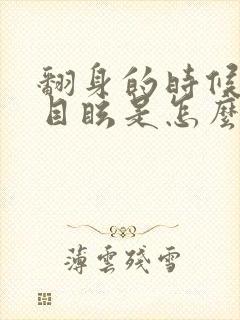 翻身的時候
目眩是怎麼
薄雲殘雪